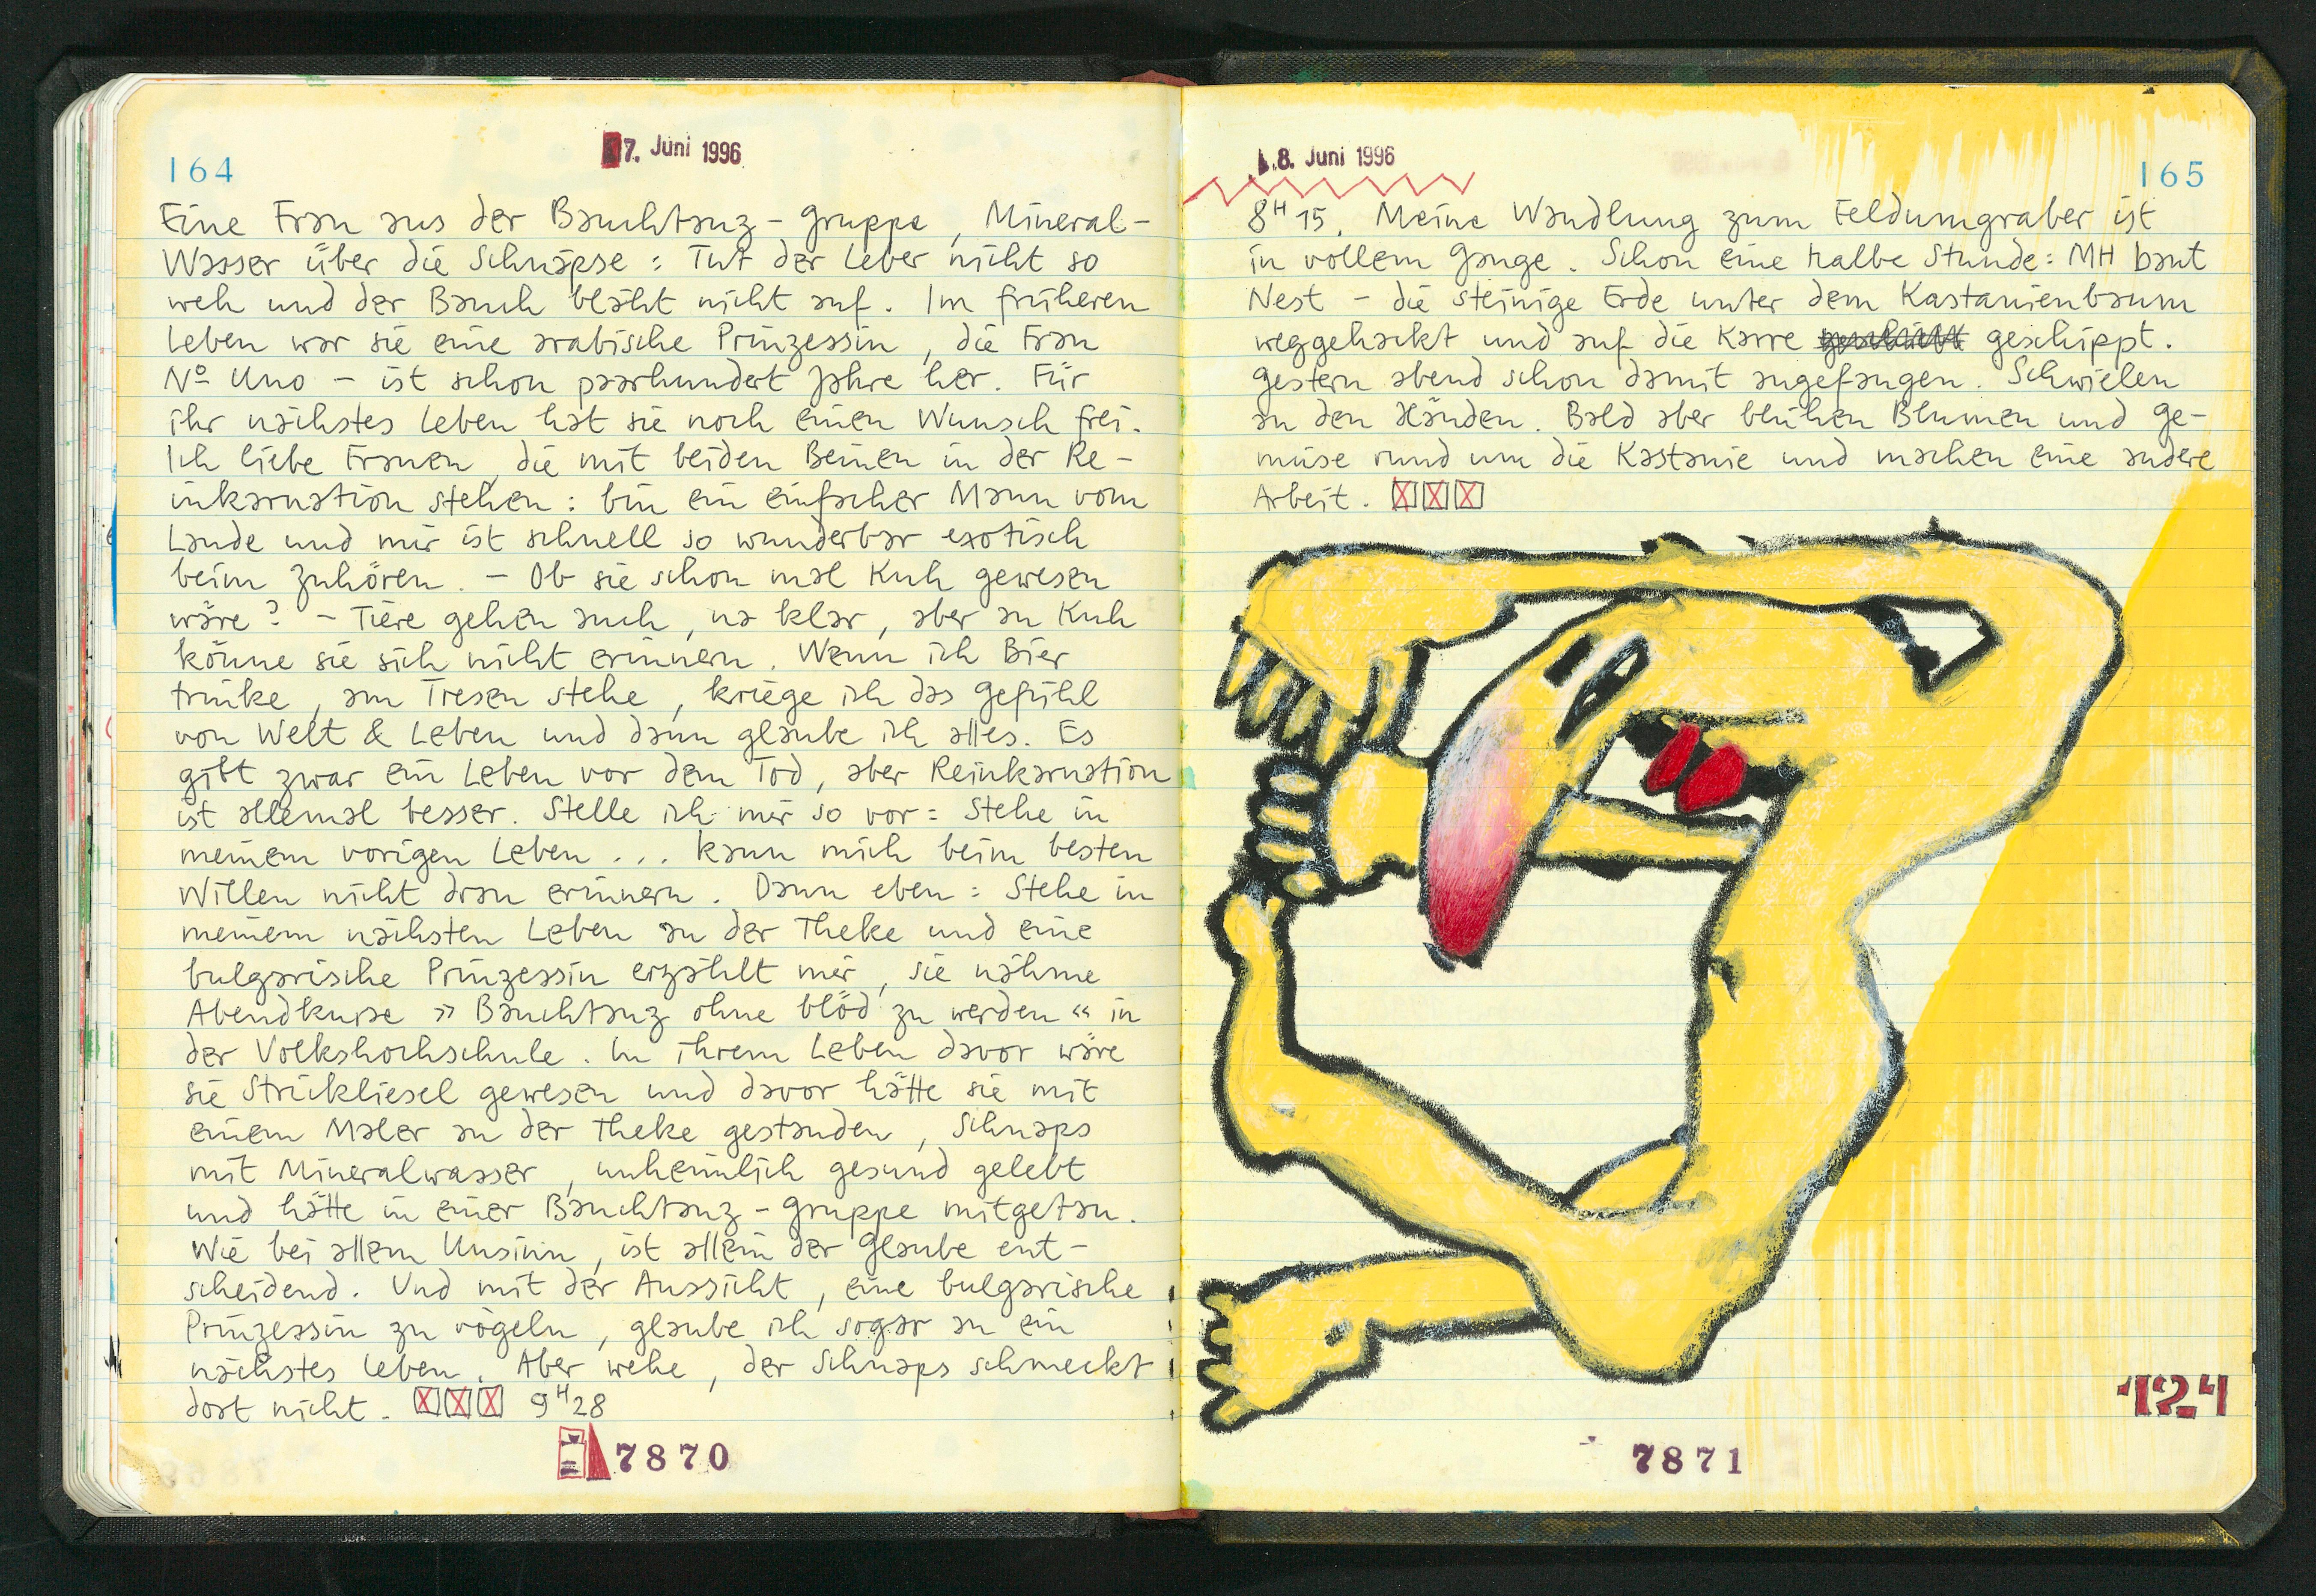 164
7. Juni 1996
Eine Frau aus der Bauchtanz-Gruppe, Mineral-
Wasser über die Schnäpse: Tut der Leber nicht so
weh und der Bauch bläht nicht auf. Im früheren
Leben war sie eine arabische Prinzessin, die Frau
Nº Uno – ist schon paarhundert Jahre her. Für
ihr nächstes Leben hat sie noch einen Wunsch frei.
Ich liebe Frauen, die mit beiden Beinen in der Re-
inkarnation stehen: bin ein einfacher Mann vom
Lande und mir ist schnell so wunderbar exotisch
beim Zuhören. – Ob sie schon mal Kuh gewesen
wäre? – Tiere gehen auch, na klar, aber an Kuh
könne sie sich nicht erinnern. Wenn ich Bier
trinke, am Tresen stehe, kriege ich das Gefühl
von Welt & Leben und dann glaube ich alles. Es
gibt zwar ein Leben vor dem Tod, aber Reinkarnation
ist allemal besser. Stelle ich mir so vor: Stehe in
meinem vorigen Leben ... kann mich beim besten
Willen nicht dran erinnern. Dann eben: Stehe in
meinem nächsten Leben an der Theke und eine
bulgarische Prinzessin erzählt mir, sie nähme
Abendkurse »Bauchtanz ohne blöd zu werden« in
der Volkshochschule. In ihrem Leben davor wäre
sie Strickliesel gewesen und davor hätte sie mit
einem Maler an der Theke gestanden, Schnaps
mit Mineralwasser, unheimlich gesund gelebt
und hätte in einer Bauchtanz-Gruppe mitgetan.
Wie bei allem Unsinn, ist allein der Glaube ent-
scheidend. Und mit der Aussicht, eine bulgarische
Prinzessin zu vögeln, glaube ich sogar an ein
nächstes Leben. Aber wehe, der Schnaps schmeckt
dort nicht. ☒☒☒ 9ᴴ28
7870
8. Juni 1996
165
8ᴴ15. Meine Wandlung zum Feldumgraber ist
in vollem Gange. Schon eine halbe Stunde: MH baut
Nest – die steinige Erde unter dem Kastanienbaum
weggehackt und auf die Karre geschippt.
Gestern abend schon damit angefangen. Schwielen
an den Händen. Bald aber blühen Blumen und Ge-
müse rund um die Kastanie und machen eine andere
Arbeit. ☒☒☒
121
7871